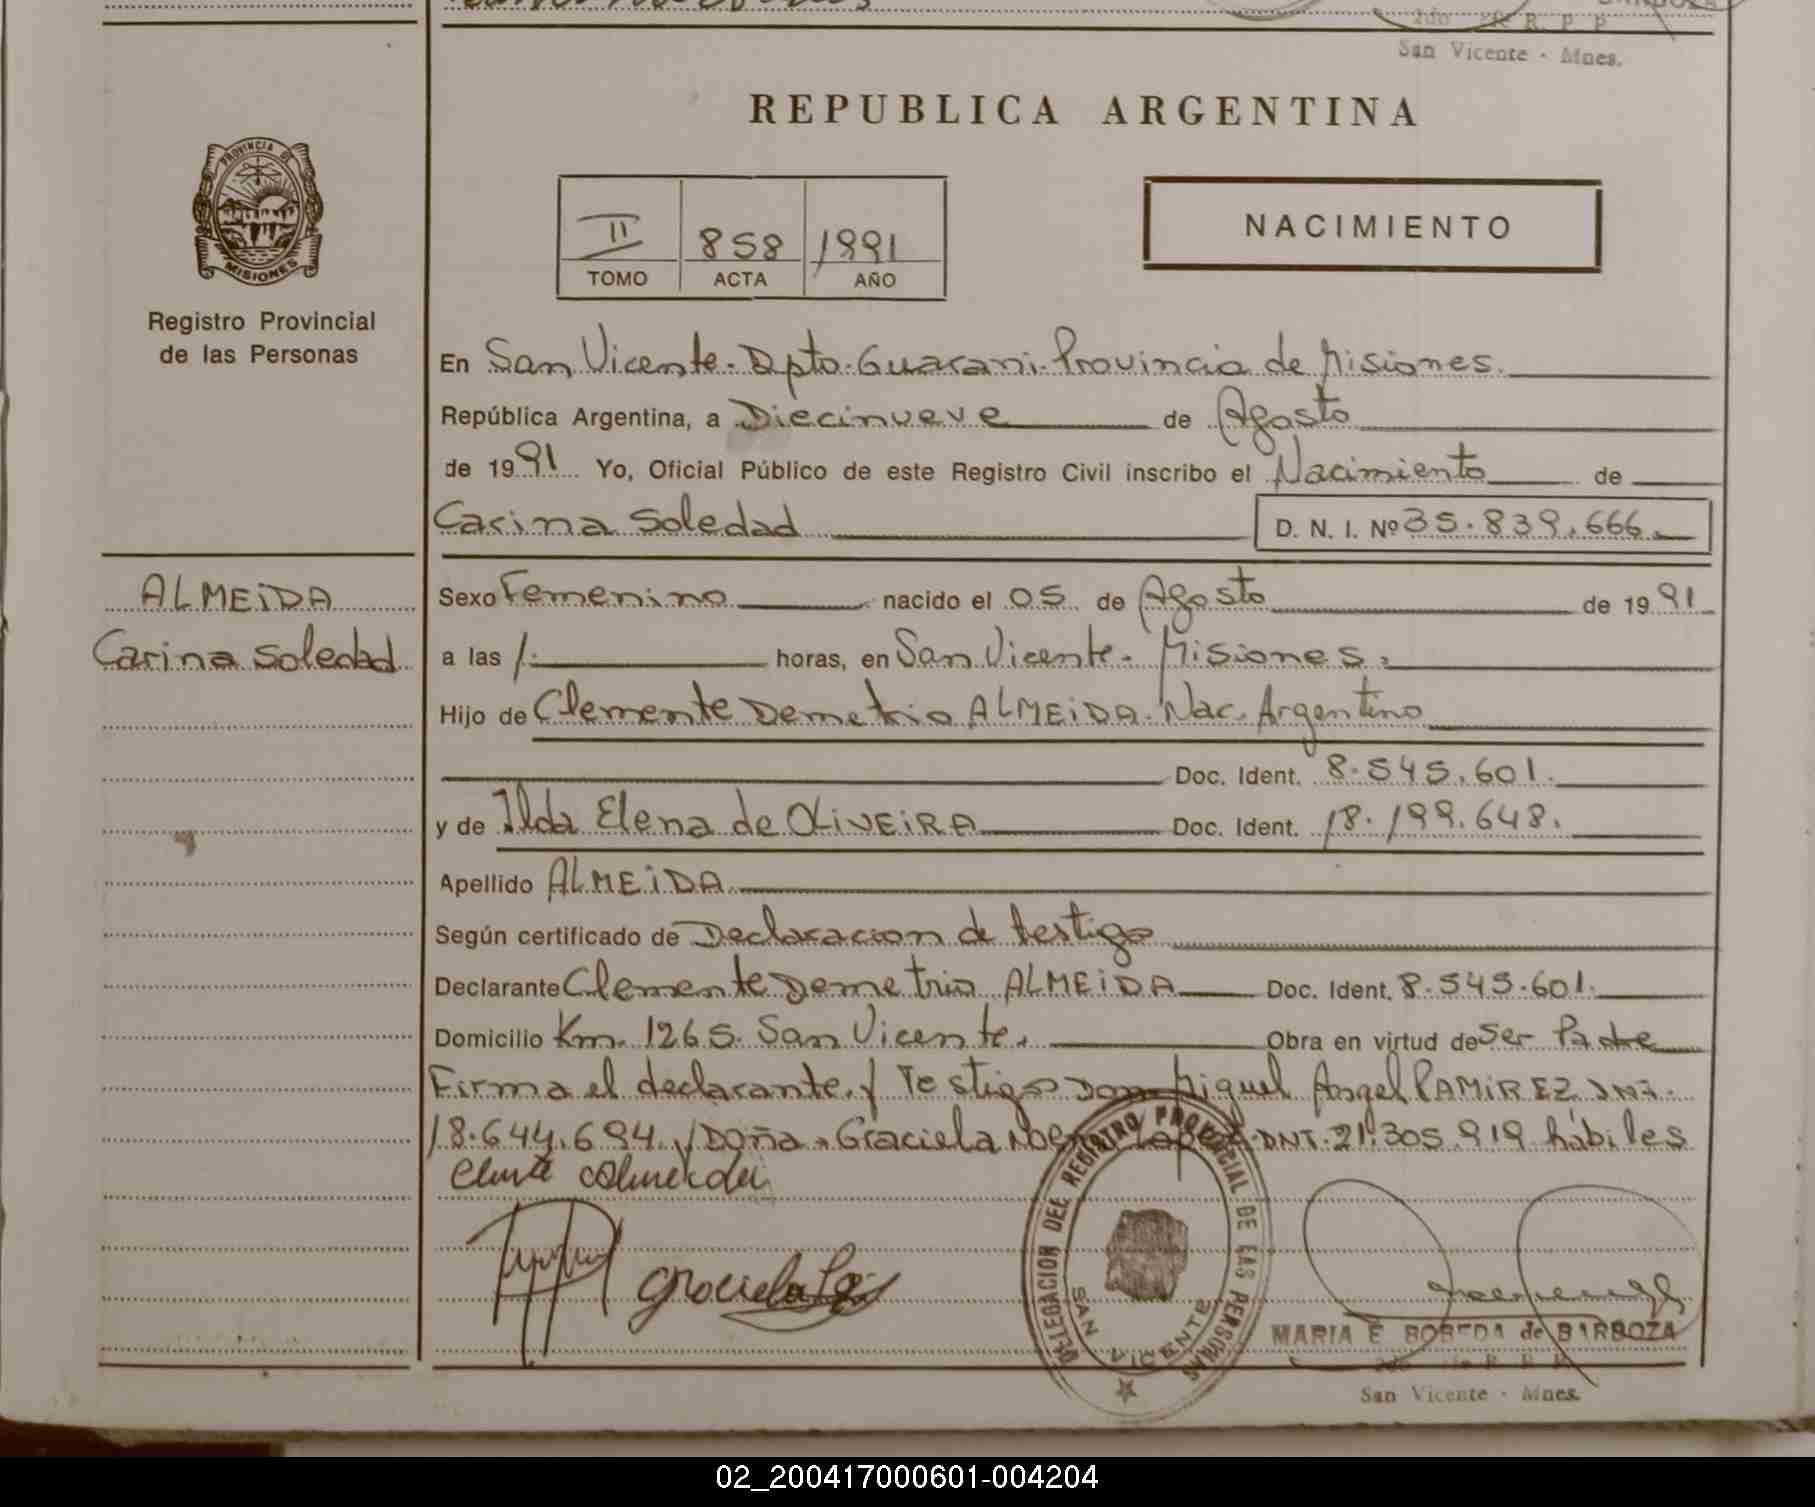 2do Jfe R. P. P.
San Vicente - Mnes.
REPUBLICA ARGENTINA
PROVINCIA DE
MISIONES
Registro Provincial
de las Personas
II 858 1991
TOMO ACTA AÑO
NACIMIENTO
En San Vicente. Dpto. Guarani. Provincia de Misiones.
República Argentina, a Diecinueve de Agosto
de 1991 Yo, Oficial Público de este Registro Civil inscribo el Nacimiento de
Carina Soledad D. N. I. Nº 35.839.666.
ALMEiDA
Carina Soledad
Sexo Femenino nacido el 05 de Agosto de 1991
a las 1. horas, en San Vicente. Misiones.
Hijo de Clemente Demetrio ALMEiDA. Nac. Argentino
Doc. Ident. 8.545.601.
y de Ilda Elena de OLiVEiRA Doc. Ident. 18.199.648.
Apellido ALMEiDA
Según certificado de Declaracion de testigo
Declarante Clemente Demetrio ALMEiDA Doc. Ident. 8.545.601.
Domicilio Km. 1265. San Vicente. Obra en virtud de Ser Padre
Firma el declarante y Testigo Don Miguel Angel RAMiREZ DNI.
18.644.694 y Doña Graciela Noemi Lopez. DNI. 21.305.919 hábiles
Graciela
DELEGACION DEL REGISTRO PROVINCIAL DE LAS PERSONAS
SAN VICENTE
MARIA E. BOBEDA de BARBOZA
2do Jfe R. P. P.
San Vicente - Mnes.
02_200417000601-004204